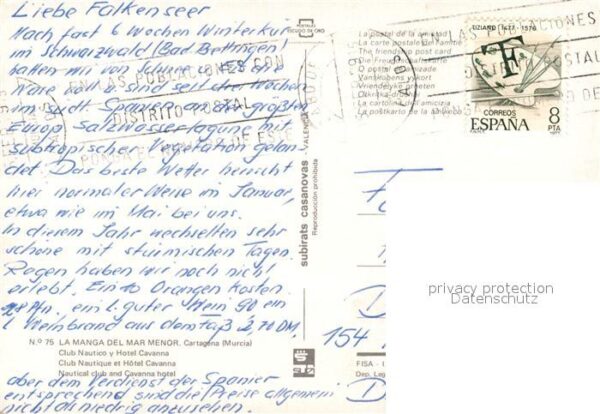 Liebe Falkenseer
Nach fast 6 Wochen Winterkur
im Schwarzwald (Bad Bettringen)
hatten wir von Schnee
Nase voll & sind seit drei Wochen
im südl. Spanien an der größten
Europ. Salzwasserlagune mit
subtropischer Vegetation gelan-
det. Das beste Wetter herrscht
hier normaler Weise im Januar,
etwa wie im Mai bei uns.
In diesem Jahr wechselten sehr
schöne mit stürmischen Tagen.
Regen haben wir noch nicht
erlebt. Ein Orangen kosten
28 Pfn. ein l. guter Wein 90 ein
l Weinbrand aus dem Faß 2,70 DM.
Nº 75 LA MANGA DEL MAR MENOR. Cartagena (Murcia)
Club Nautico y Hotel Cavanna
Club Nautique et Hôtel Cavanna
Nautical club and Cavanna hotel
aber dem Verdienst der Spanier
entsprechend sind die Preise allgemein
nicht als niedrig anzusehen.
POSTALES
ESCUDO DE ORO
subirats casanovas - VALENCIA
Reproducción prohibida
La postal de la amistad
La carte postale de l'amitié
The friendship post card
Die Freundschaftskarte
O postal da amizade
Vanskabens kort
Vriendelijke groeten
La cartolina dell'amicizia
La postkarto de la amikeco
LAS POBLACIONES CON
DISTRITO POSTAL
PONGA EL NUMERO DE ESTE
EN LAS POBLACIONES
DISTRITO POSTAL
UZIARDI 1477-1576
CORREOS
ESPAÑA 8
PTA
154
FISA - 
Dep. Leg.
privacy protection
Datenschutz